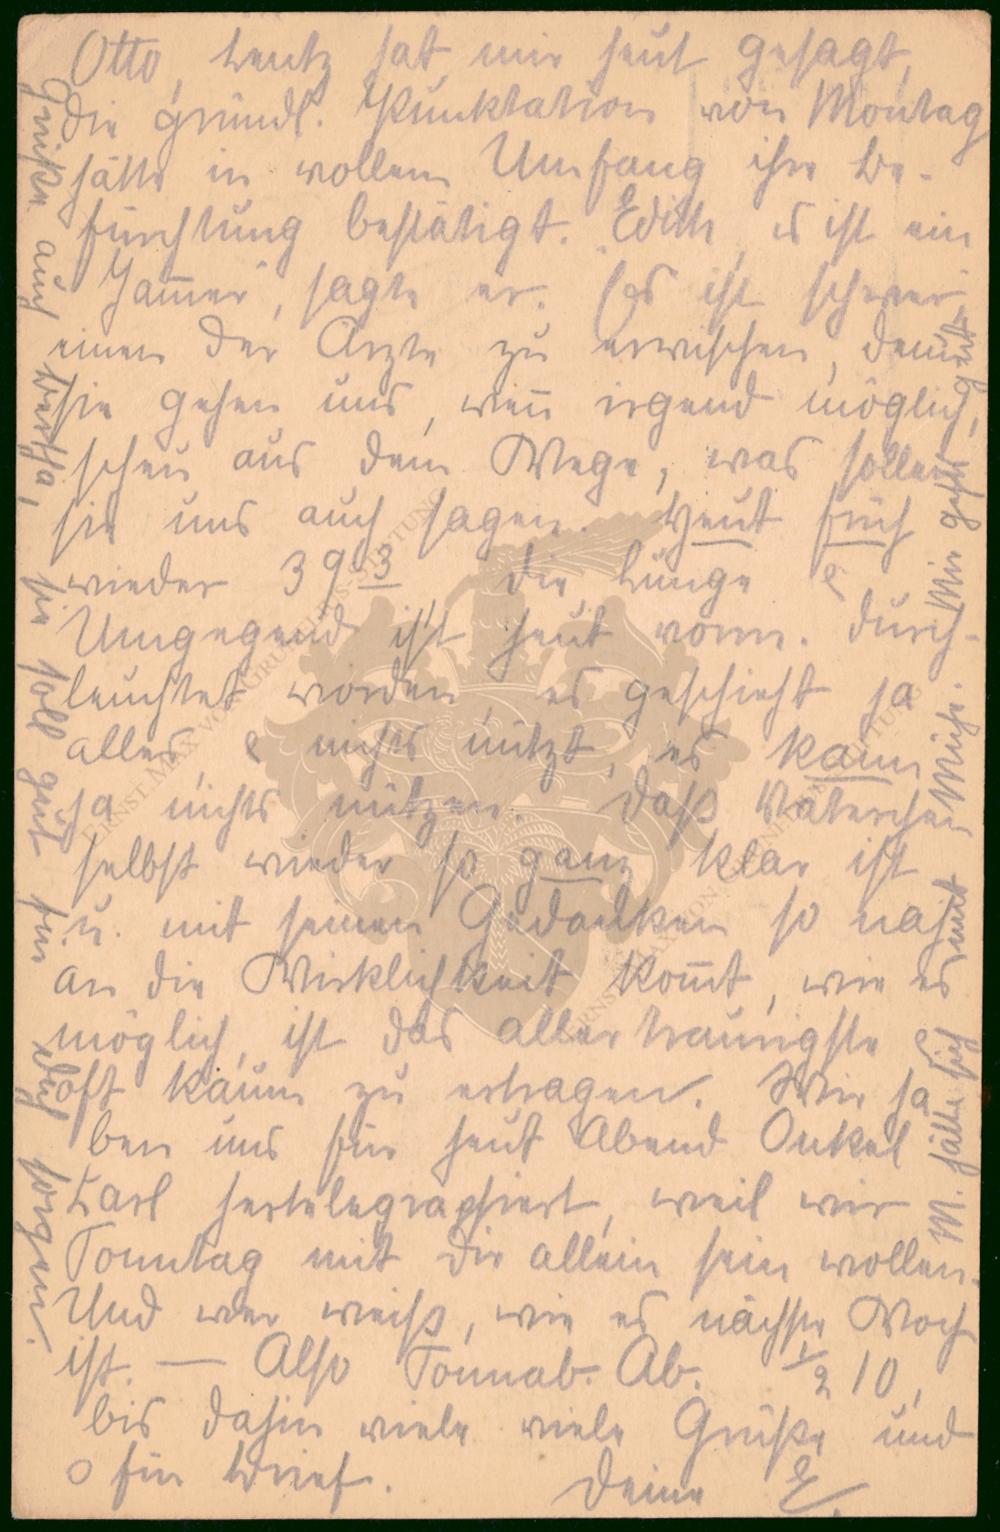 Otto, Lentz hat mir heut gesagt,
die gründl. Punktation von Montag
hätte in vollem Umfang ihre Be-
fürchtung bestätigt. "Edith, es ist ein
Jam̄er", sagte er. Es ist schwer
einen der Ärzte zu erwischen, denn
sie gehen uns, wen̄ irgend möglich,
scheu aus dem Wege, was sollen
sie uns auch sagen. Heut früh
wieder 39 3 die Lunge &
Umgegend ist heut vorm. durch-
leuchtet worden, es geschieht ja
alles, & nichts nützt, es kann
ja nichts nützen. Daß Väterchen
selbst wieder so ganz klar ist
u. mit seinen Gedanken so nah
an die Wirklichkeit kom̄t, wie es
möglich, ist das allertraurigste &
oft kaum zu ertragen. Wir ha
ben uns für heut Abend Onkel
Carl hertelegraphiert, weil wir
Sonntag mit Dir allein sein wollen.
Und wer weiß, wie es nächste Woch
ist. — Also Sonnab. Ab. 1/2 10,
bis dahin viele viele Grüße und
o für Brief. Deine E.
Grüße auch Bertha, sie soll gut für Dich sorgen.
M. hätte sich mit Mühe. Mir geht's gut.
ERNST MAX VON GRUNELIUS-STIFTUNG
ERNST MAX VON GRUNELIUS-STIFTUNG